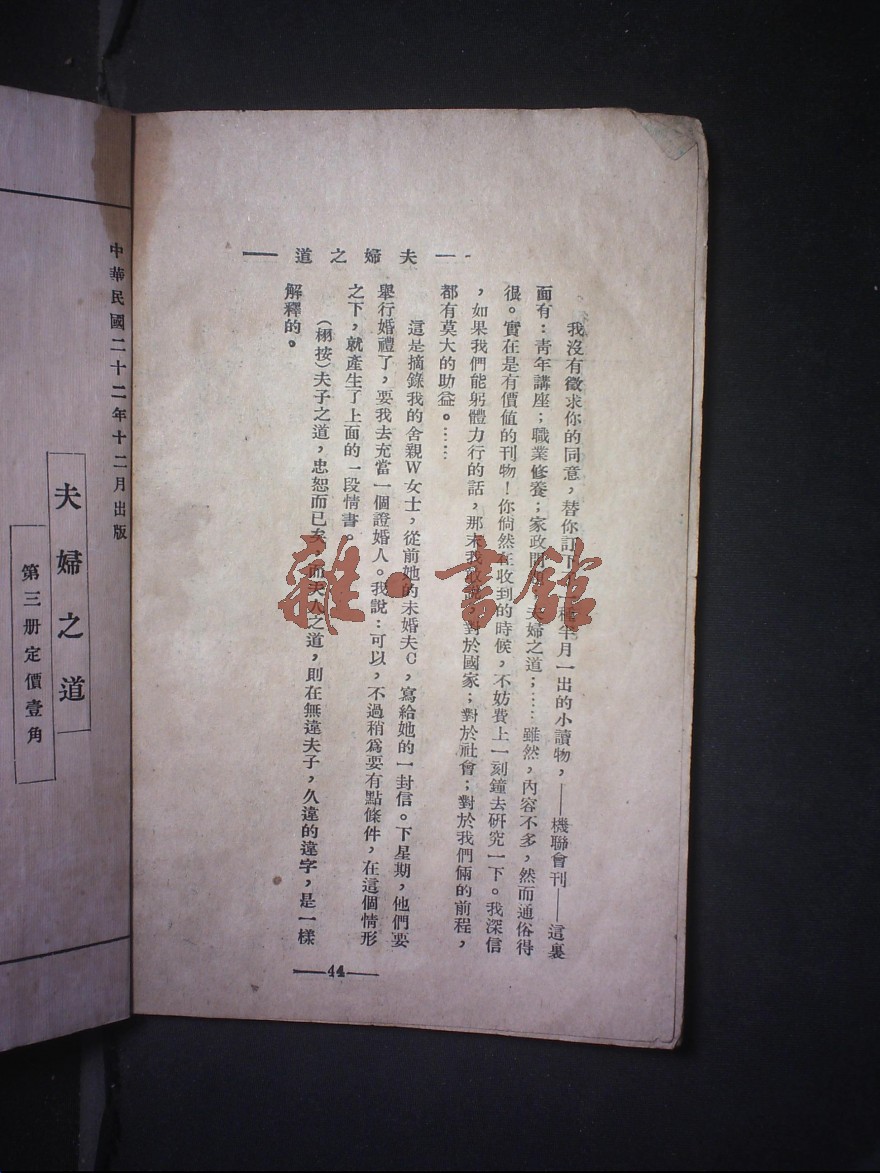 道之婦夫
我沒有徵求你的同意，替你訂下半月一出的小讀物，——機聯會刊——這裏
面有：靑年講座；職業修養；家政問；夫婦之道；……雖然，內容不多，然而通俗得
很。實在是有價値的刊物！你倘然在收到的時候，不妨費上一刻鐘去硏究一下。我深信
，如果我們能躬體力行的話，那末我對於國家；對於社會；對於我們倆的前程，
都有莫大的助益。……
這是摘錄我的舍親W女士，從前她的未婚夫C，寫給她的一封信。下星期，他們要
舉行婚禮了，要我去充當一個證婚人。我說：可以，不過稍爲要有點條件，在這個情形
之下，就產生了上面的一段情書。
（栩按）夫子之道，忠恕而已矣，而夫人之道，則在無違夫子，久違的違字，是一樣
解釋的。
44
中華民國二十二年十二月出版
夫婦之道
第三册定價壹角
雜·書館